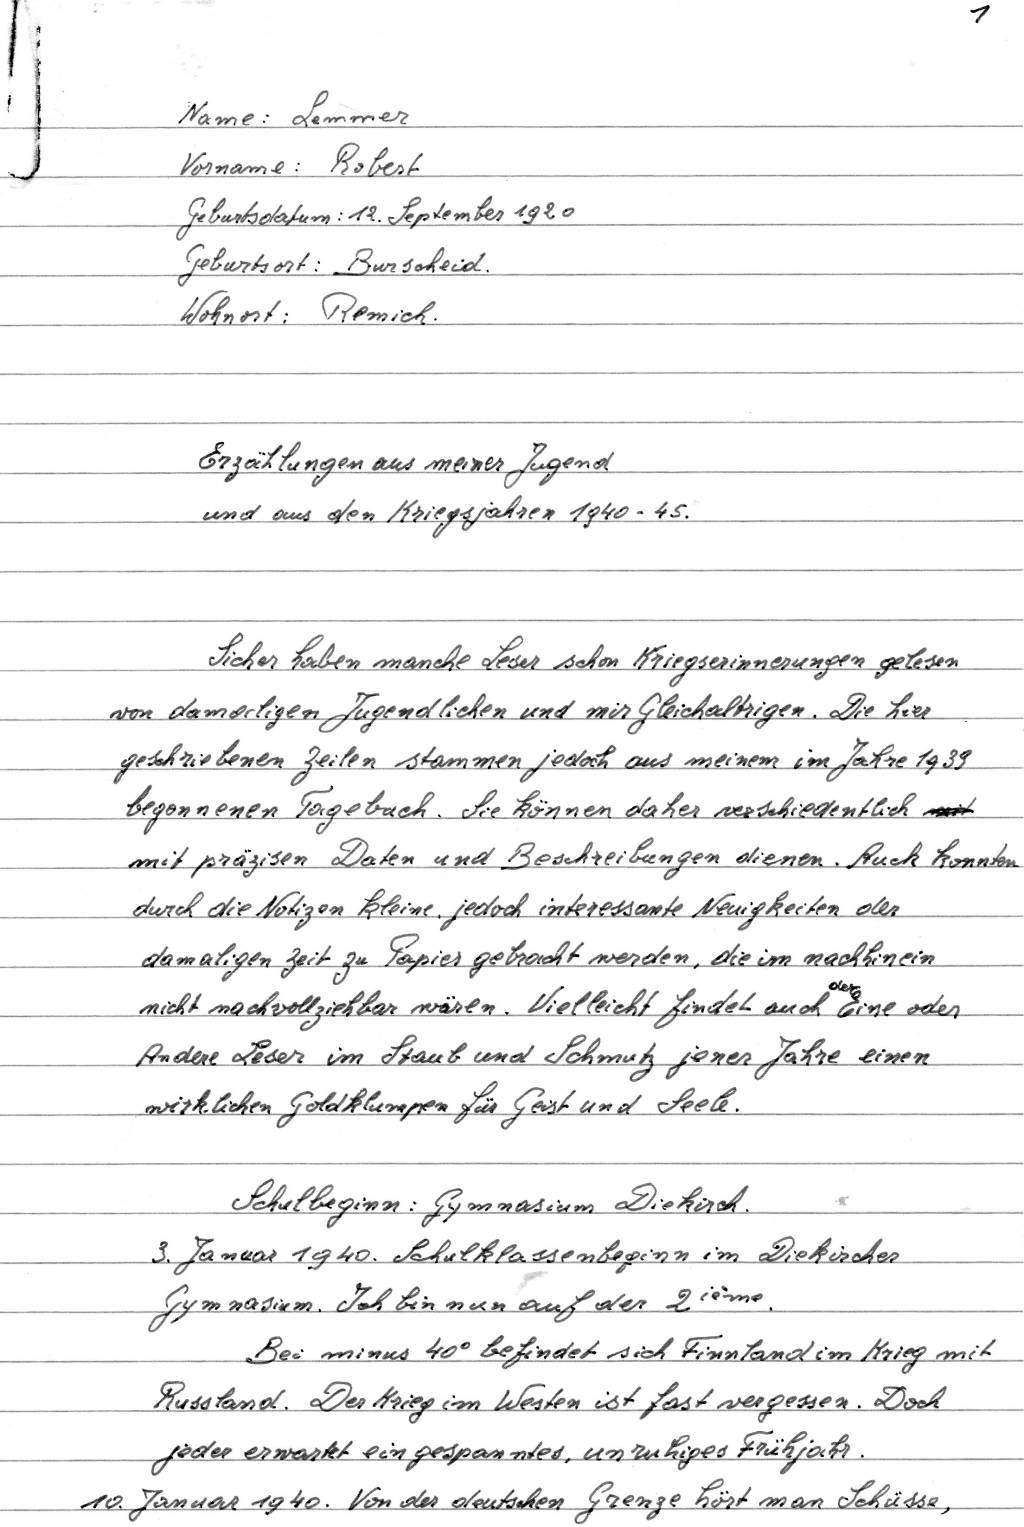 1
Name: Lemmer
Vorname: Robert
Geburtsdatum: 12. September 1920
Geburtsort: Burscheid.
Wohnort: Remich.
Erzählungen aus meiner Jugend
und aus den Kriegsjahren 1940-45.
Sicher haben manche Leser schon Kriegserinnerungen gelesen
von damaligen Jugendlichen und mir Gleichaltrigen. Die hier
geschriebenen Zeilen stammen jedoch aus meinem im Jahre 1939
begonnenen Tagebuch. Sie können daher verschiedentlich mit
mit präzisen Daten und Beschreibungen dienen. Auch konnten
durch die Notizen kleine, jedoch interessante Neuigkeiten der
damaligen Zeit zu Papier gebracht werden, die im nachhinein
nicht nachvollziehbar wären. Vielleicht findet auch der Eine oder
Andere Leser im Staub und Schmutz jener Jahre einen
wirklichen Goldklumpen für Geist und Seele.
Schulbeginn: Gymnasium Diekirch.
3. Januar 1940. Schulklassenbeginn im Diekircher
Gymnasium. Ich bin nun auf der 2ième.
Bei minus 40° befindet sich Finnland im Krieg mit
Russland. Der Krieg im Westen ist fast vergessen. Doch
jeder erwartet ein gespanntes, unruhiges Frühjahr.
10. Januar 1940. Von der deutschen Grenze hört man Schüsse,